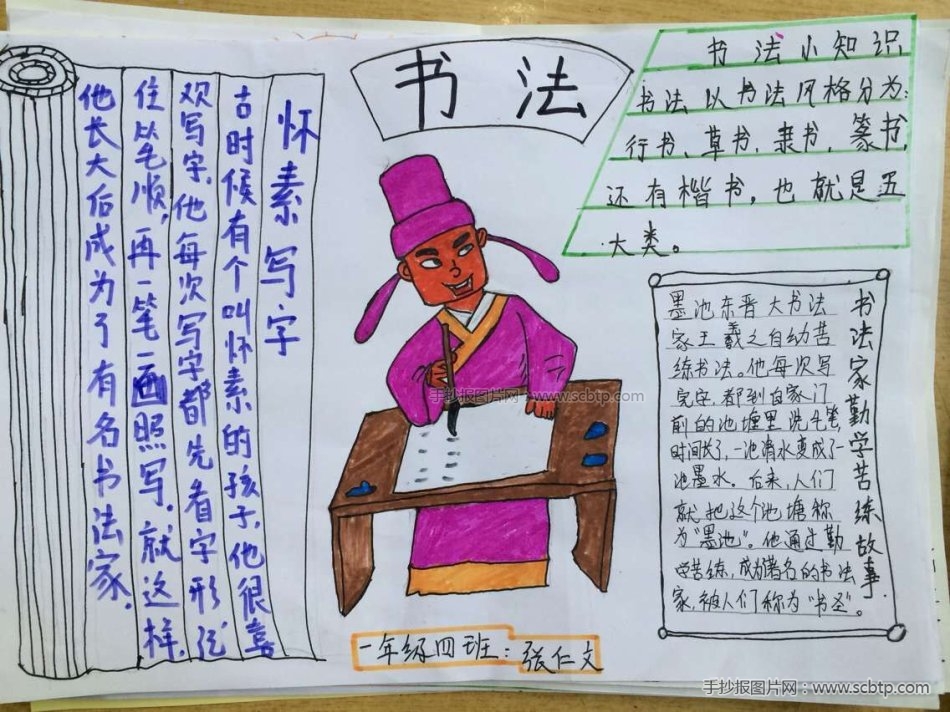 书法
怀素写字
古时候有个叫怀素的孩子,他很喜
欢写字,他每次写字都先看字形记
住笔顺,再一笔一画照写,就这样,
他长大后成为了有名书法家.
书法小知识
书法以书法风格分为:
行书、草书、隶书、篆书,
还有楷书,也就是五
大类。
书法家勤学苦练故事
墨池东晋大书法
家王羲之自幼苦
练书法。他每次写
完字,都到自家门
前的池塘里洗毛笔,
时间长了,一池清水变成了一
池墨水。后来,人们
就把这个池塘称
为"墨池"。他通过勤
学苦练,成为著名的书法
家,被人们称为"书圣"。
一年级四班:张仁文
手抄报图片网:www.scbtp.com
手抄报图片网:www.scbtp.com